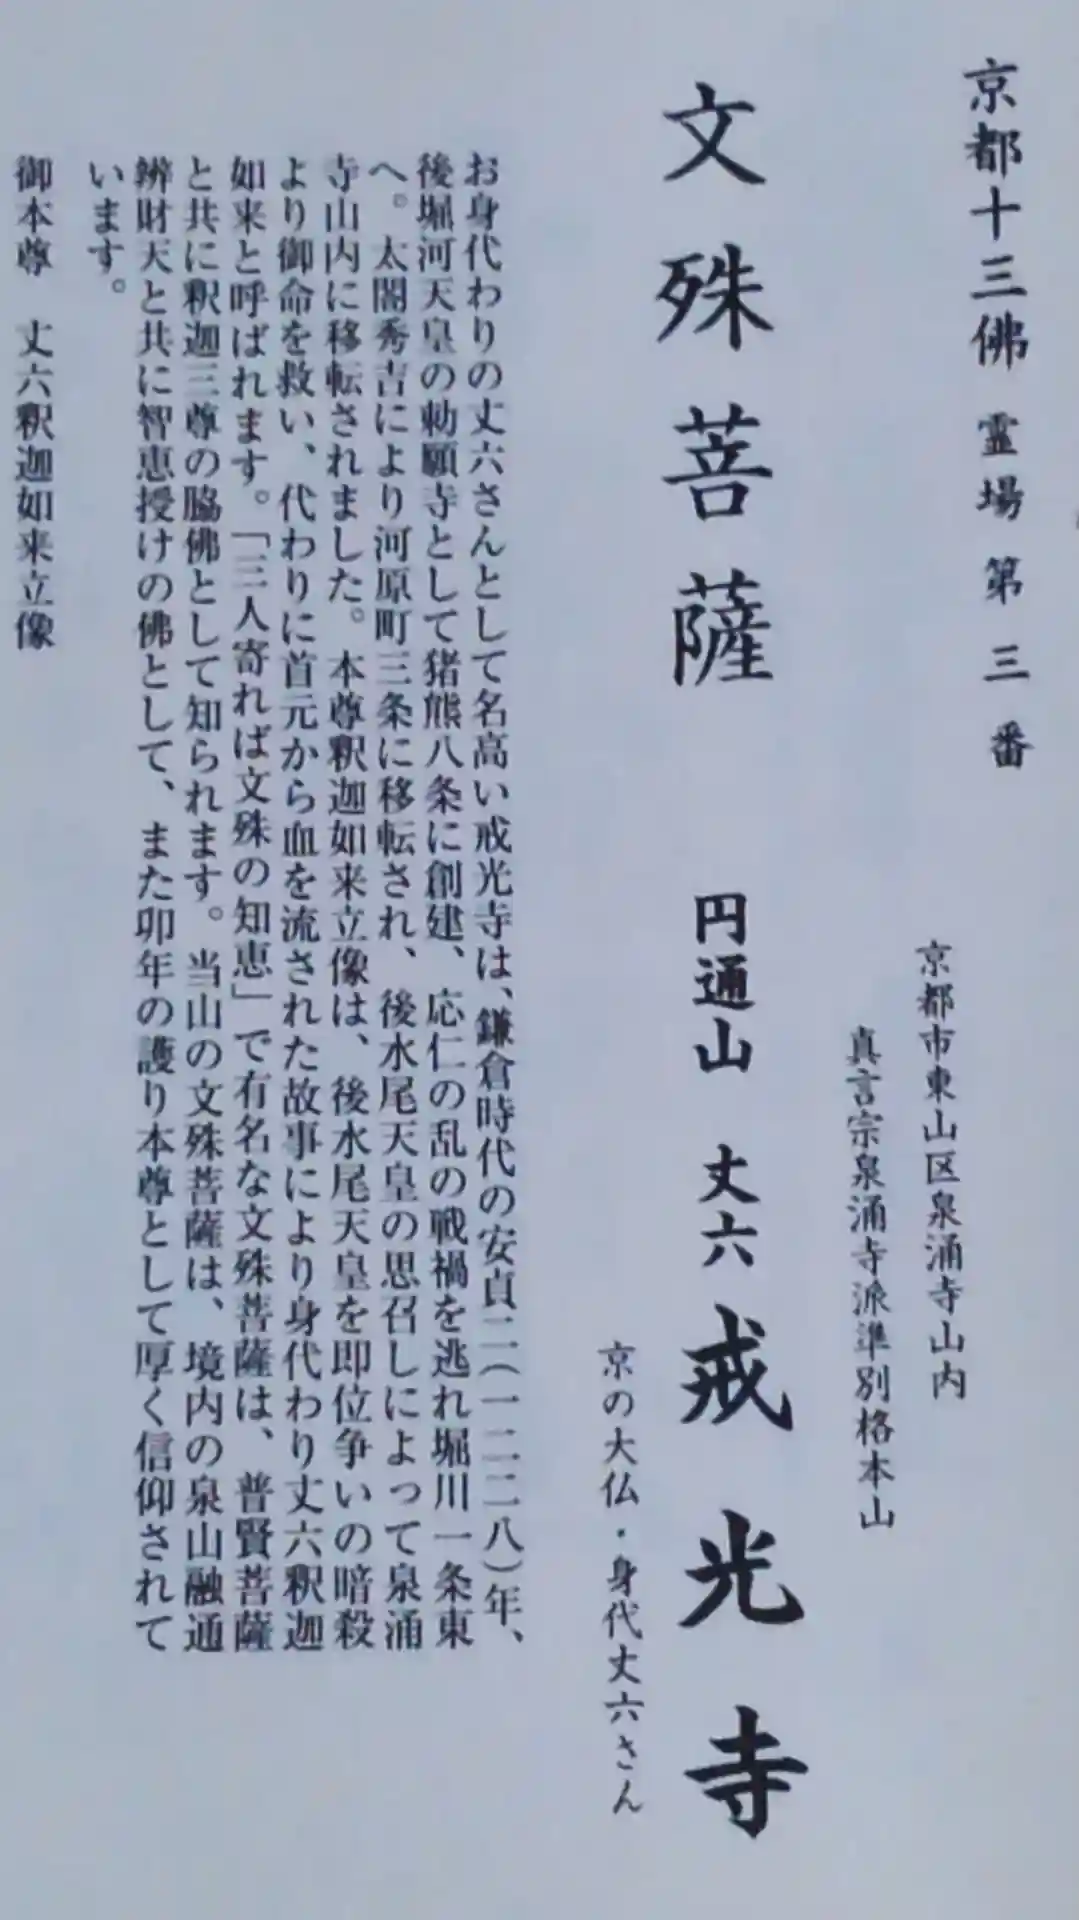 京都十三佛 霊場 第三番
文殊菩薩
京都市東山区泉涌寺山内
真言宗泉涌寺派準別格本山
円通山 丈六戒光寺
京の大仏・身代丈六さん
お身代わりの丈六さんとして名高い戒光寺は、鎌倉時代の安貞二(一二二八)年、
後堀河天皇の勅願寺として猪熊八条に創建、応仁の乱の戦禍を逃れ堀川一条東
へ。太閤秀吉により河原町三条に移転され、後水尾天皇の思召しによって泉涌
寺山内に移転されました。本尊釈迦如来立像は、後水尾天皇を即位争いの暗殺
より御命を救い、代わりに首元から血を流された故事により身代わり丈六釈迦
如来と呼ばれます。「三人寄れば文殊の知恵」で有名な文殊菩薩は、普賢菩薩
と共に釈迦三尊の脇佛として知られます。当山の文殊菩薩は、境内の泉山融通
辨財天と共に智恵授けの佛として、また卯年の護り本尊として厚く信仰されて
います。
御本尊 丈六釈迦如来立像